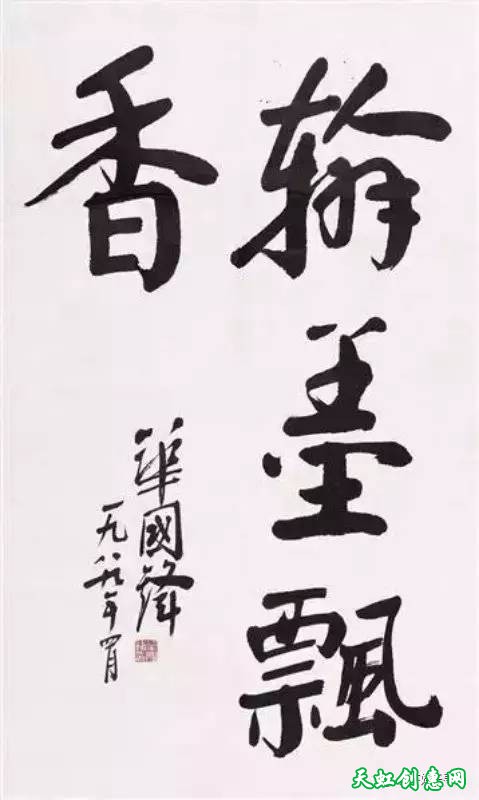 翰墨飄
香
華國鋒
一九八九年四月
天虹创意网